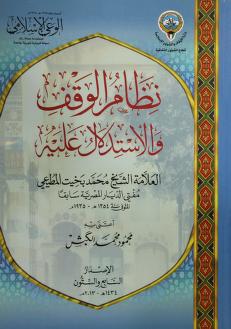 الوعي الإسلامي
نظام الوقف
والاستدلال عليه
العلامة الشيخ محمد بخيت المطيعي
مفتي الديار المصرية سابقا
المتوفى سنة ١٣٥٤هـ - ١٩٣٥م
اعتنى به
محمود محمد الكبش
الإصدار
السابع والستون
١٤٣٤هـ - ٢٠١٣م